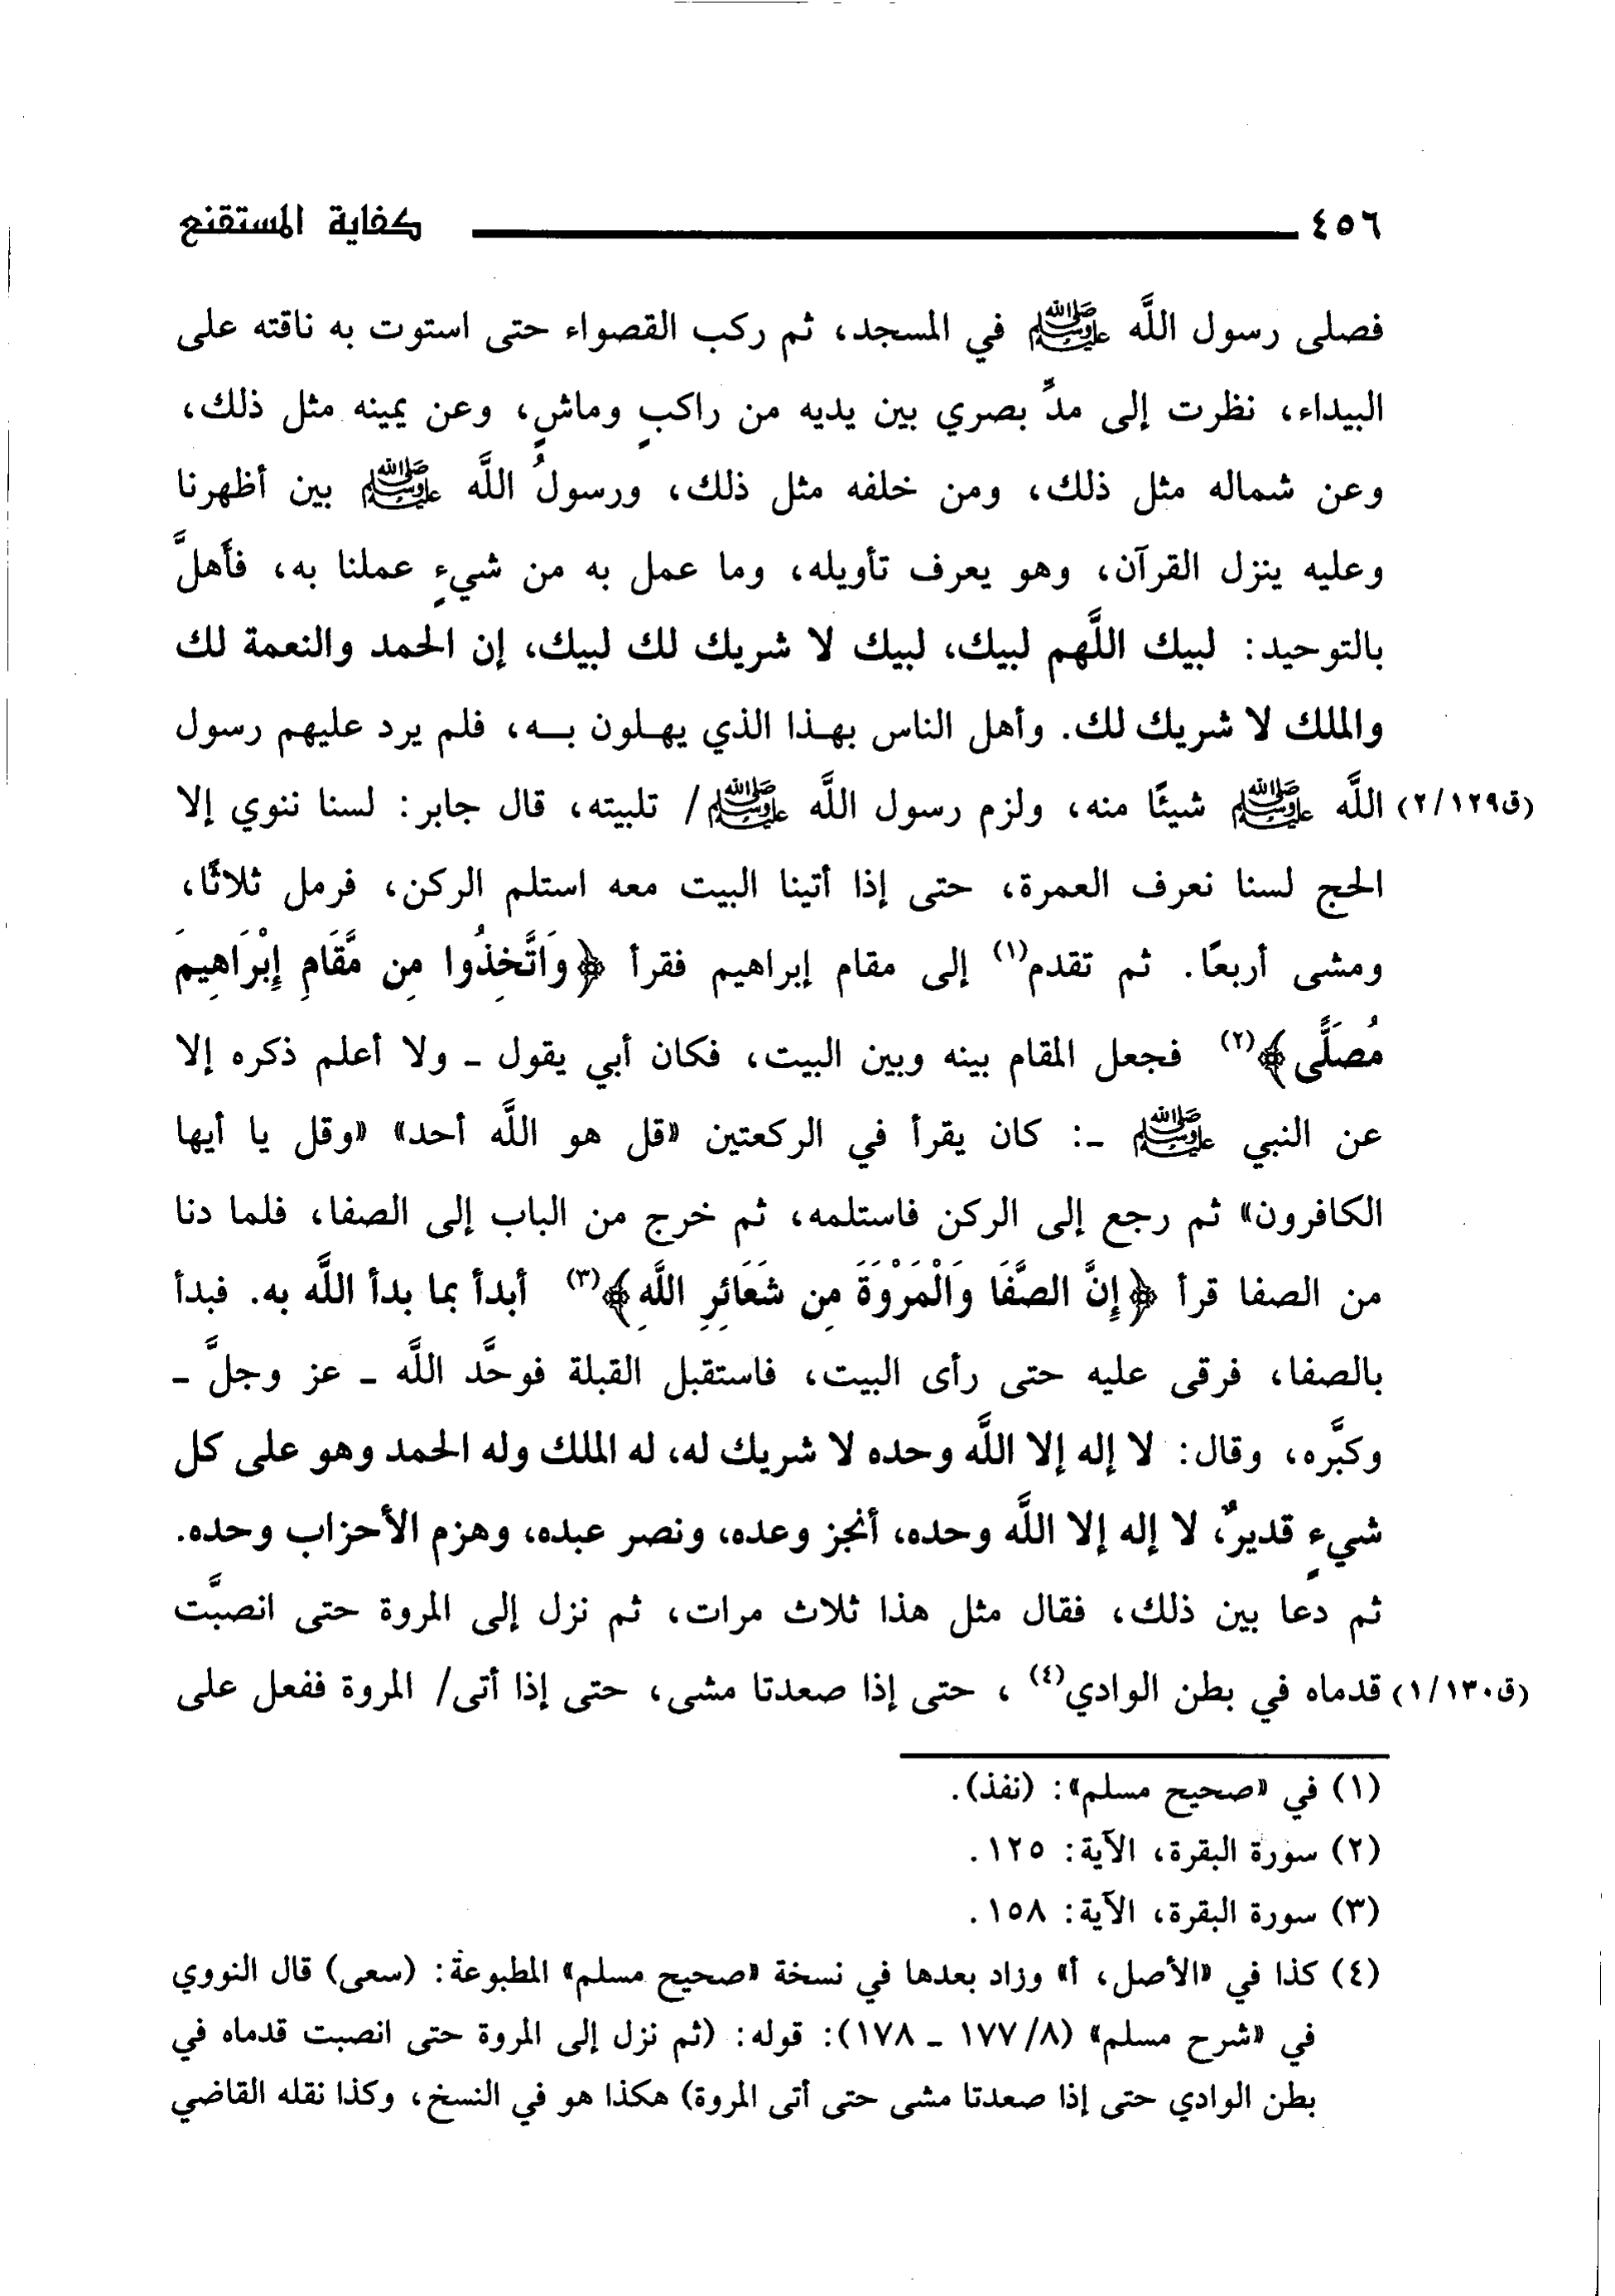 ٤٥٦ كفاية المستقنع
فصلى رسول اللَّه ﷺ في المسجد، ثم ركب القصواء حتى استوت به ناقته على
البيداء، نظرت إلى مدِّ بصري بين يديه من راكبٍ وماشٍ، وعن يمينه مثل ذلك،
وعن شماله مثل ذلك، ومن خلفه مثل ذلك، ورسولُ اللَّه ﷺ بين أظهرنا
وعليه ينزل القرآن، وهو يعرف تأويله، وما عمل به من شيءٍ عملنا به، فأهلَّ
بالتوحيد: لبيك اللَّهم لبيك، لبيك لا شريك لك لبيك، إن الحمد والنعمة لك
والملك لا شريك لك. وأهل الناس بهذا الذي يهلون بـه، فلم يرد عليهم رسول
(ق٢/١٢٩) اللَّه ﷺ شيئًا منه، ولزم رسول اللَّه ﷺ/ تلبيته، قال جابر: لسنا ننوي إلا
الحج لسنا نعرف العمرة، حتى إذا أتينا البيت معه استلم الركن، فرمل ثلاثًا،
ومشى أربعًا. ثم تقدم(١) إلى مقام إبراهيم فقرأ ﴿وَاتَّخِذُوا مِن مَّقَامِ إِبْرَاهِيمَ
مُصَلًّى﴾(٢) فجعل المقام بينه وبين البيت، فكان أبي يقول ـ ولا أعلم ذكره إلا
عن النبي ﷺ ـ: كان يقرأ في الركعتين «قل هو اللَّه أحد» «وقل يا أيها
الكافرون» ثم رجع إلى الركن فاستلمه، ثم خرج من الباب إلى الصفا، فلما دنا
من الصفا قرأ ﴿إِنَّ الصَّفَا وَالْمَرْوَةَ مِن شَعَائِرِ اللَّهِ﴾(٣) أبدأ بما بدأ اللَّه به. فبدأ
بالصفا، فرقى عليه حتى رأى البيت، فاستقبل القبلة فوحَّد اللَّه ـ عز وجلَّ ـ
وكبَّره، وقال: لا إله إلا اللَّه وحده لا شريك له، له الملك وله الحمد وهو على كل
شيءٍ قديرٌ، لا إله إلا اللَّه وحده، أنجز وعده، ونصر عبده، وهزم الأحزاب وحده.
ثم دعا بين ذلك، فقال مثل هذا ثلاث مرات، ثم نزل إلى المروة حتى انصبَّت
(ق١/١٣٠) قدماه في بطن الوادي(٤)، حتى إذا صعدتا مشى، حتى إذا أتى/ المروة ففعل على
(١) في «صحيح مسلم»: (نفذ).
(٢) سورة البقرة، الآية: ١٢٥.
(٣) سورة البقرة، الآية: ١٥٨.
(٤) كذا في «الأصل، أ» وزاد بعدها في نسخة «صحيح مسلم» المطبوعة: (سعى) قال النووي
في «شرح مسلم» (٨/ ١٧٧ ـ ١٧٨): قوله: (ثم نزل إلى المروة حتى انصبت قدماه في
بطن الوادي حتى إذا صعدتا مشى حتى أتى المروة) هكذا هو في النسخ، وكذا نقله القاضي